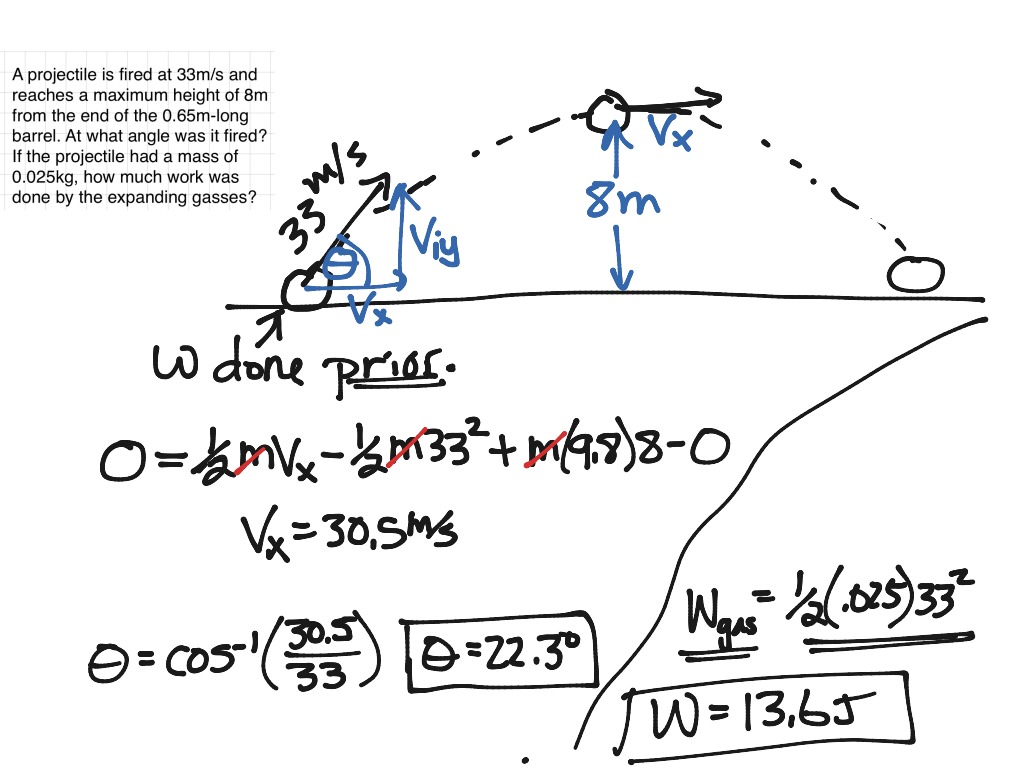 A projectile is fired at 33m/s and
reaches a maximum height of 8m
from the end of the 0.65m-long
barrel. At what angle was it fired?
If the projectile had a mass of
0.025kg, how much work was
done by the expanding gasses?
33 m/s
θ
Viy
Vx
8m
Vx
W done prior.
0 = ½mVx - ½m33² + m(9.8)8 - 0
Vx = 30.5m/s
θ = cos⁻¹(30.5/33) θ = 22.3°
Wgas = ½(.025)33²
W = 13.6J